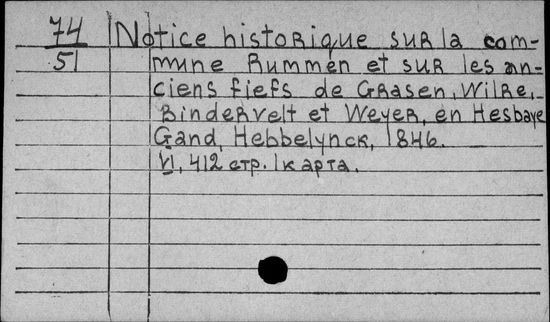 74 Notice historique sur la com-
51 mune Rummen et sur les an-
ciens fiefs de Grasen, Wilre,
Bindervelt et Weyer, en Hesbaye
Gand, Hebbelynck, 1846.
VI, 412 стр. 1 карта.